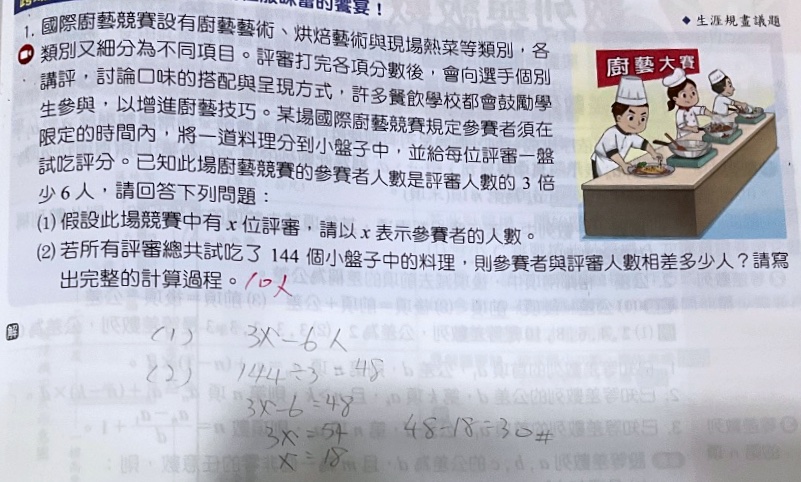 1. 國際廚藝競賽設有廚藝藝術、烘焙藝術與現場熱菜等類別，各
類別又細分為不同項目。評審打完各項分數後，會向選手個別
講評，討論口味的搭配與呈現方式，許多餐飲學校都會鼓勵學
生參與，以增進廚藝技巧。某場國際廚藝競賽規定參賽者須在
限定的時間內，將一道料理分到小盤子中，並給每位評審一盤
試吃評分。已知此場廚藝競賽的參賽者人數是評審人數的 3 倍
少 6 人，請回答下列問題：
(1) 假設此場競賽中有 x 位評審，請以 x 表示參賽者的人數。
(2) 若所有評審總共試吃了 144 個小盤子中的料理，則參賽者與評審人數相差多少人？請寫
出完整的計算過程。10人
◆ 生涯規畫議題
廚藝大賽
解
(1) 3x-6人
(2) 144÷3=48
3x-6=48
3x=54 48-18=30#
x=18